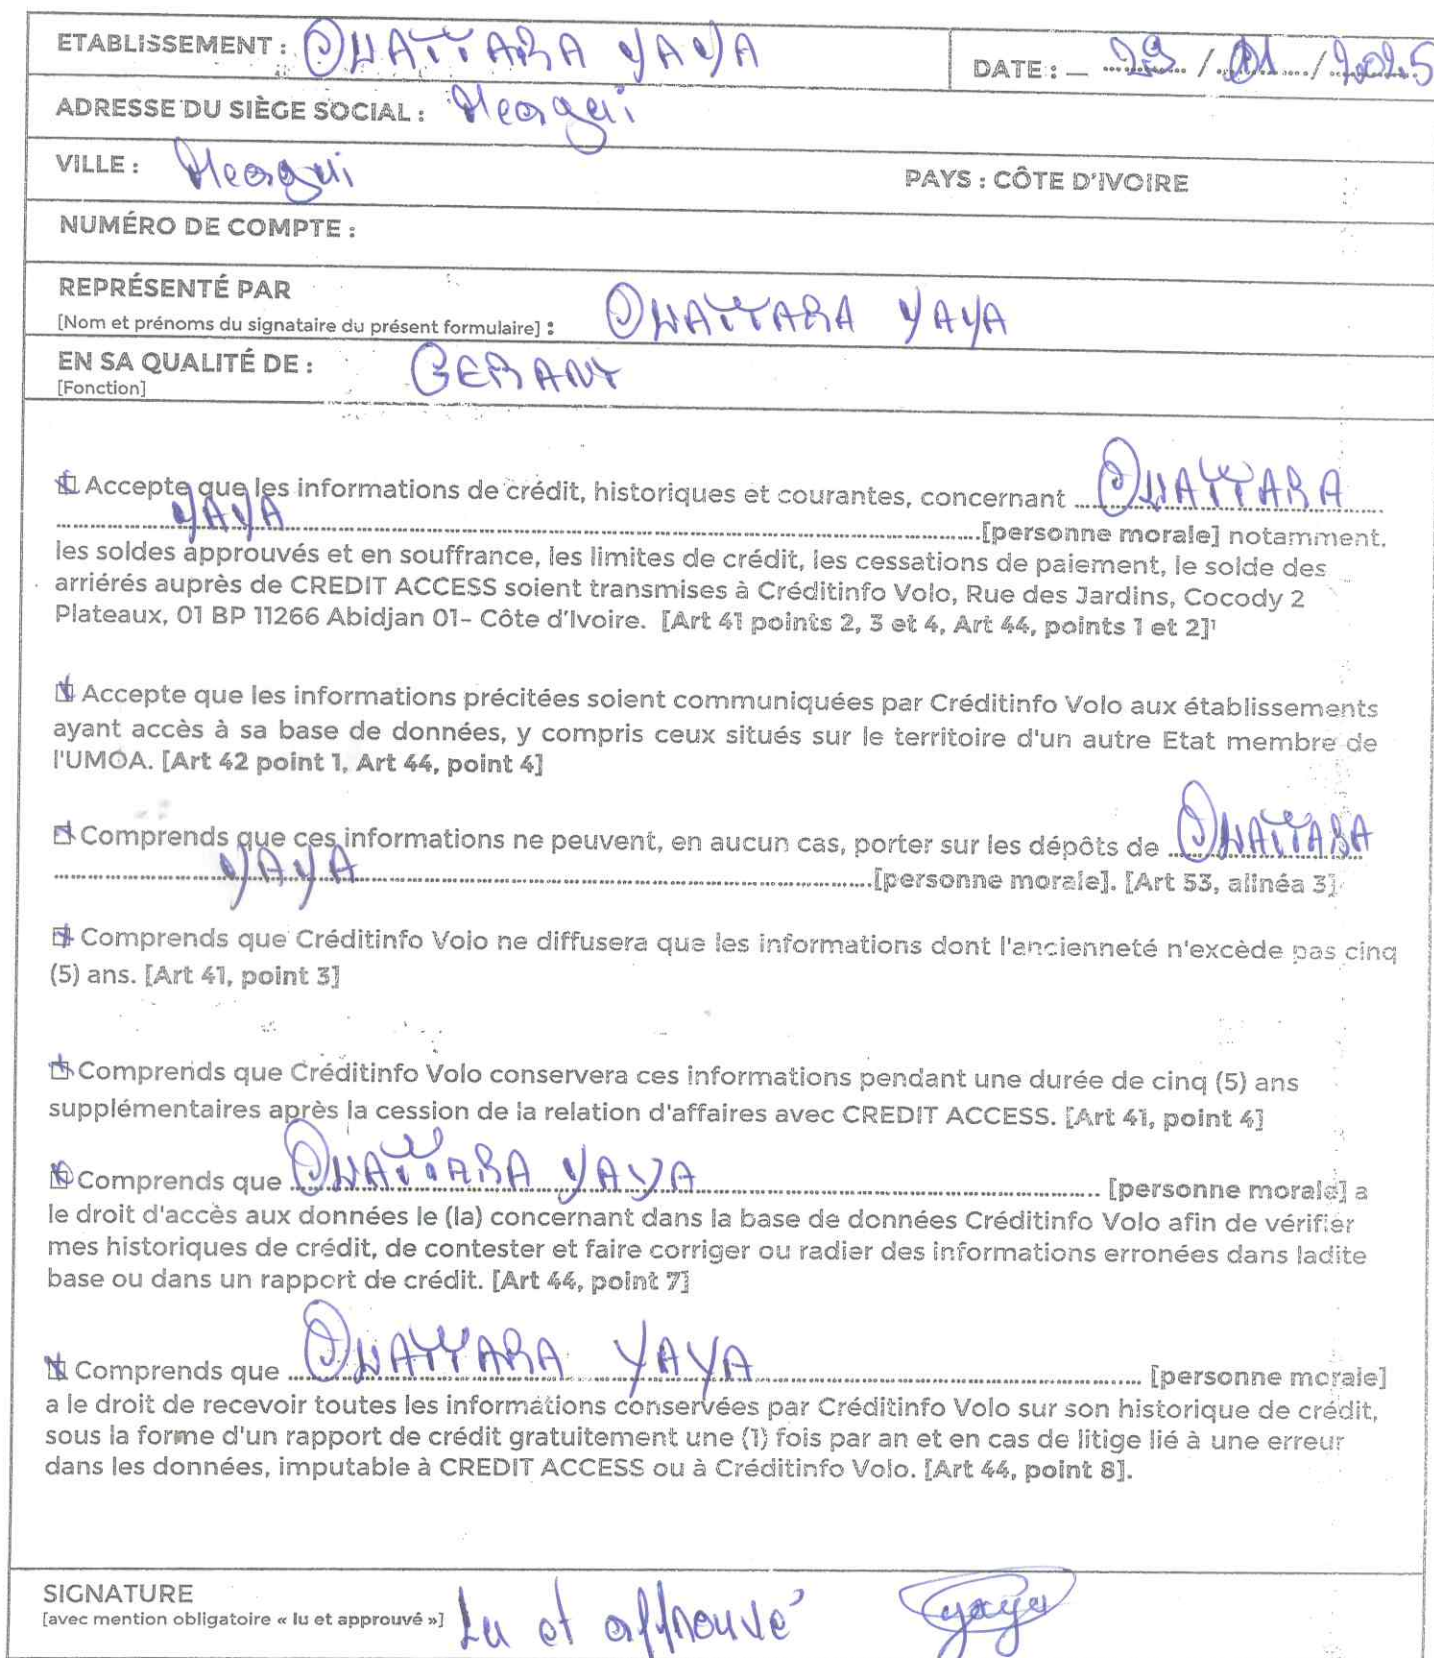 ETABLISSEMENT : OUATTARA YAYA
DATE : – 29 / 01 / 2025
ADRESSE DU SIÈGE SOCIAL : Meagui
VILLE : Meagui PAYS : CÔTE D'IVOIRE
NUMÉRO DE COMPTE :
REPRÉSENTÉ PAR
[Nom et prénoms du signataire du présent formulaire] : OUATTARA YAYA
EN SA QUALITÉ DE : GERANT
[Fonction]
Accepte que les informations de crédit, historiques et courantes, concernant OUATTARA
YAYA [personne morale] notamment.
les soldes approuvés et en souffrance, les limites de crédit, les cessations de paiement, le solde des
arriérés auprès de CREDIT ACCESS soient transmises à Créditinfo Volo, Rue des Jardins, Cocody 2
Plateaux, 01 BP 11266 Abidjan 01- Côte d'Ivoire. [Art 41 points 2, 3 et 4, Art 44, points 1 et 2]¹
Accepte que les informations précitées soient communiquées par Créditinfo Volo aux établissements
ayant accès à sa base de données, y compris ceux situés sur le territoire d'un autre Etat membre de
l'UMOA. [Art 42 point 1, Art 44, point 4]
Comprends que ces informations ne peuvent, en aucun cas, porter sur les dépôts de OUATTARA
YAYA [personne morale]. [Art 53, alinéa 3]
Comprends que Créditinfo Volo ne diffusera que les informations dont l'ancienneté n'excède pas cinq
(5) ans. [Art 41, point 3]
Comprends que Créditinfo Volo conservera ces informations pendant une durée de cinq (5) ans
supplémentaires après la cession de la relation d'affaires avec CREDIT ACCESS. [Art 41, point 4]
Comprends que OUATTARA YAYA [personne morale] a
le droit d'accès aux données le (la) concernant dans la base de données Créditinfo Volo afin de vérifier
mes historiques de crédit, de contester et faire corriger ou radier des informations erronées dans ladite
base ou dans un rapport de crédit. [Art 44, point 7]
Comprends que OUATTARA YAYA [personne morale]
a le droit de recevoir toutes les informations conservées par Créditinfo Volo sur son historique de crédit,
sous la forme d'un rapport de crédit gratuitement une (1) fois par an et en cas de litige lié à une erreur
dans les données, imputable à CREDIT ACCESS ou à Créditinfo Volo. [Art 44, point 8].
SIGNATURE
[avec mention obligatoire « lu et approuvé »] Lu et approuvé yaya